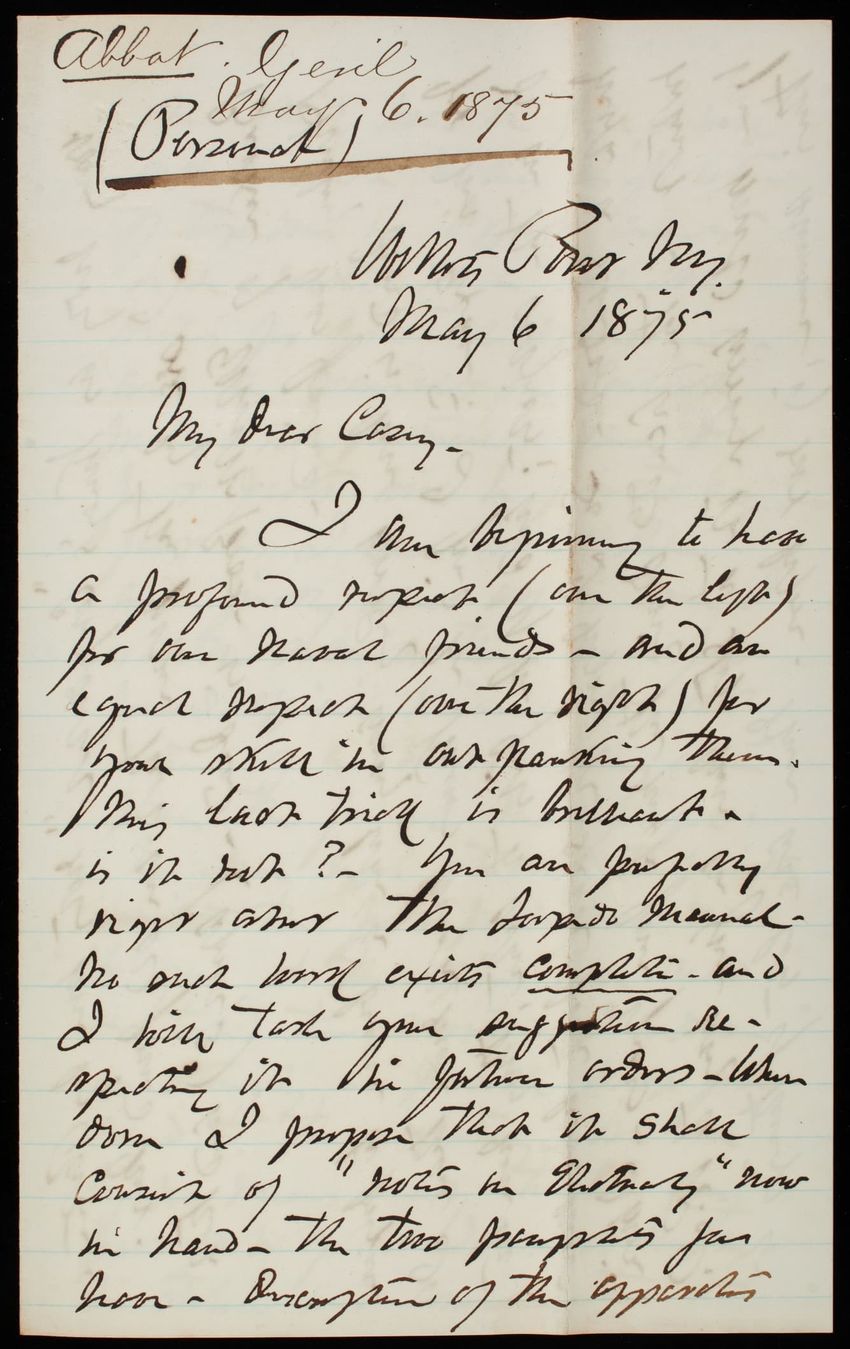 Abbot. Genl
May 6. 1875
(Personal)
Willets Point N.Y.
May 6 1875
My dear Casey-
I am beginning to have
a profound respect (over the left)
for our naval friends - and an
equal respect (over the right) for
your skill in outflanking them.
This last trick is brilliant -
is it not? - You are perfectly
right about the Torpedo Manual -
No such work exists complete - and
I will take your suggestion re-
specting it in future orders - When
done I propose that it shall
consist of "notes on Electricity" now
in hand - the two pamphlets you
have - Description of the apparatus